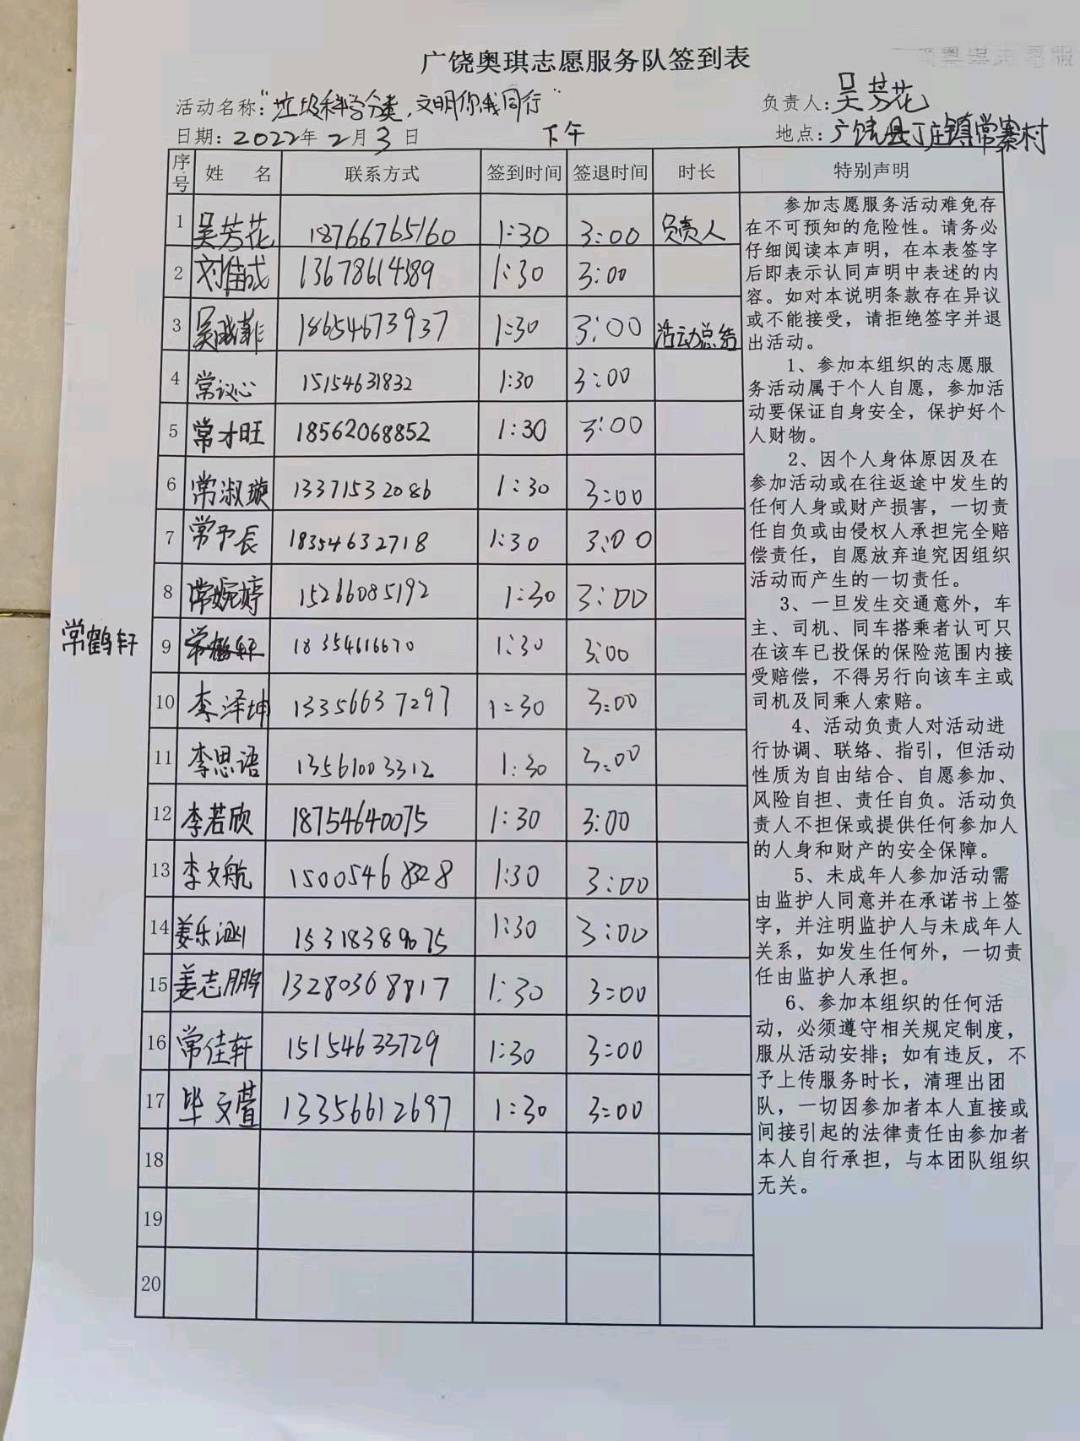 广饶奥琪志愿服务队签到表
活动名称:"垃圾科学分类,文明你我同行" 负责人:吴芳花
日期:2022年2月3日 下午 地点:广饶县丁庄镇常寨村
序号 姓 名 联系方式 签到时间 签退时间 时长 特别声明
1 吴芳花 18766765160 1:30 3:00 负责人
2 刘倍成 13678614389 1:30 3:00
3 吴晓菲 18654673937 1:30 3:00 活动总结
4 常议心 15154631832 1:30 3:00
5 常才旺 18562068852 1:30 3:00
6 常淑璇 13371532086 1:30 3:00
7 常予长 18354632718 1:30 3:00
8 常婉婷 15266085192 1:30 3:00
常鹤轩 9 18354616670 1:30 3:00
10 李泽坤 13356637297 1:30 3:00
11 李思语 13561003312 1:30 3:00
12 李若欣 18754640075 1:30 3:00
13 李文航 15005468328 1:30 3:00
14 姜乐涵 15318389675 1:30 3:00
15 姜志鹏 13280368817 1:30 3:00
16 常佳轩 15154633729 1:30 3:00
17 毕文萱 13356612697 1:30 3:00
18
19
20
参加志愿服务活动难免存
在不可预知的危险性。请务必
仔细阅读本声明,在本表签字
后即表示认同声明中表述的内
容。如对本说明条款存在异议
或不能接受,请拒绝签字并退
出活动。
1、参加本组织的志愿服
务活动属于个人自愿,参加活
动要保证自身安全,保护好个
人财物。
2、因个人身体原因及在
参加活动或在往返途中发生的
任何人身或财产损害,一切责
任自负或由侵权人承担完全赔
偿责任,自愿放弃追究因组织
活动而产生的一切责任。
3、一旦发生交通意外,车
主、司机、同车搭乘者认可只
在该车已投保的保险范围内接
受赔偿,不得另行向该车主或
司机及同乘人索赔。
4、活动负责人对活动进
行协调、联络、指引,但活动
性质为自由结合、自愿参加、
风险自担、责任自负。活动负
责人不担保或提供任何参加人
的人身和财产的安全保障。
5、未成年人参加活动需
由监护人同意并在承诺书上签
字,并注明监护人与未成年人
关系,如发生任何外,一切责
任由监护人承担。
6、参加本组织的任何活
动,必须遵守相关规定制度,
服从活动安排;如有违反,不
予上传服务时长,清理出团
队,一切因参加者本人直接或
间接引起的法律责任由参加者
本人自行承担,与本团队组织
无关。